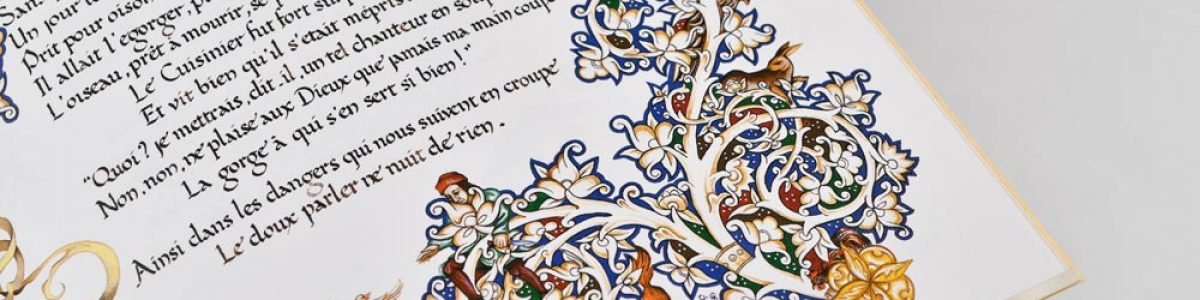 San
Un jour le
Prit pour oison
Il allait l'égorger, po
L'oiseau, prêt à mourir, se p
Le Cuisinier fut fort sur
Et vit bien qu'il s'était mépris
"Quoi? je mettrais, dit-il, un tel chanteur en soup
Non, non, ne plaise aux Dieux que jamais ma main coupe
La gorge à qui s'en sert si bien!"
Ainsi dans les dangers qui nous suivent en croupe
Le doux parler ne nuit de rien.